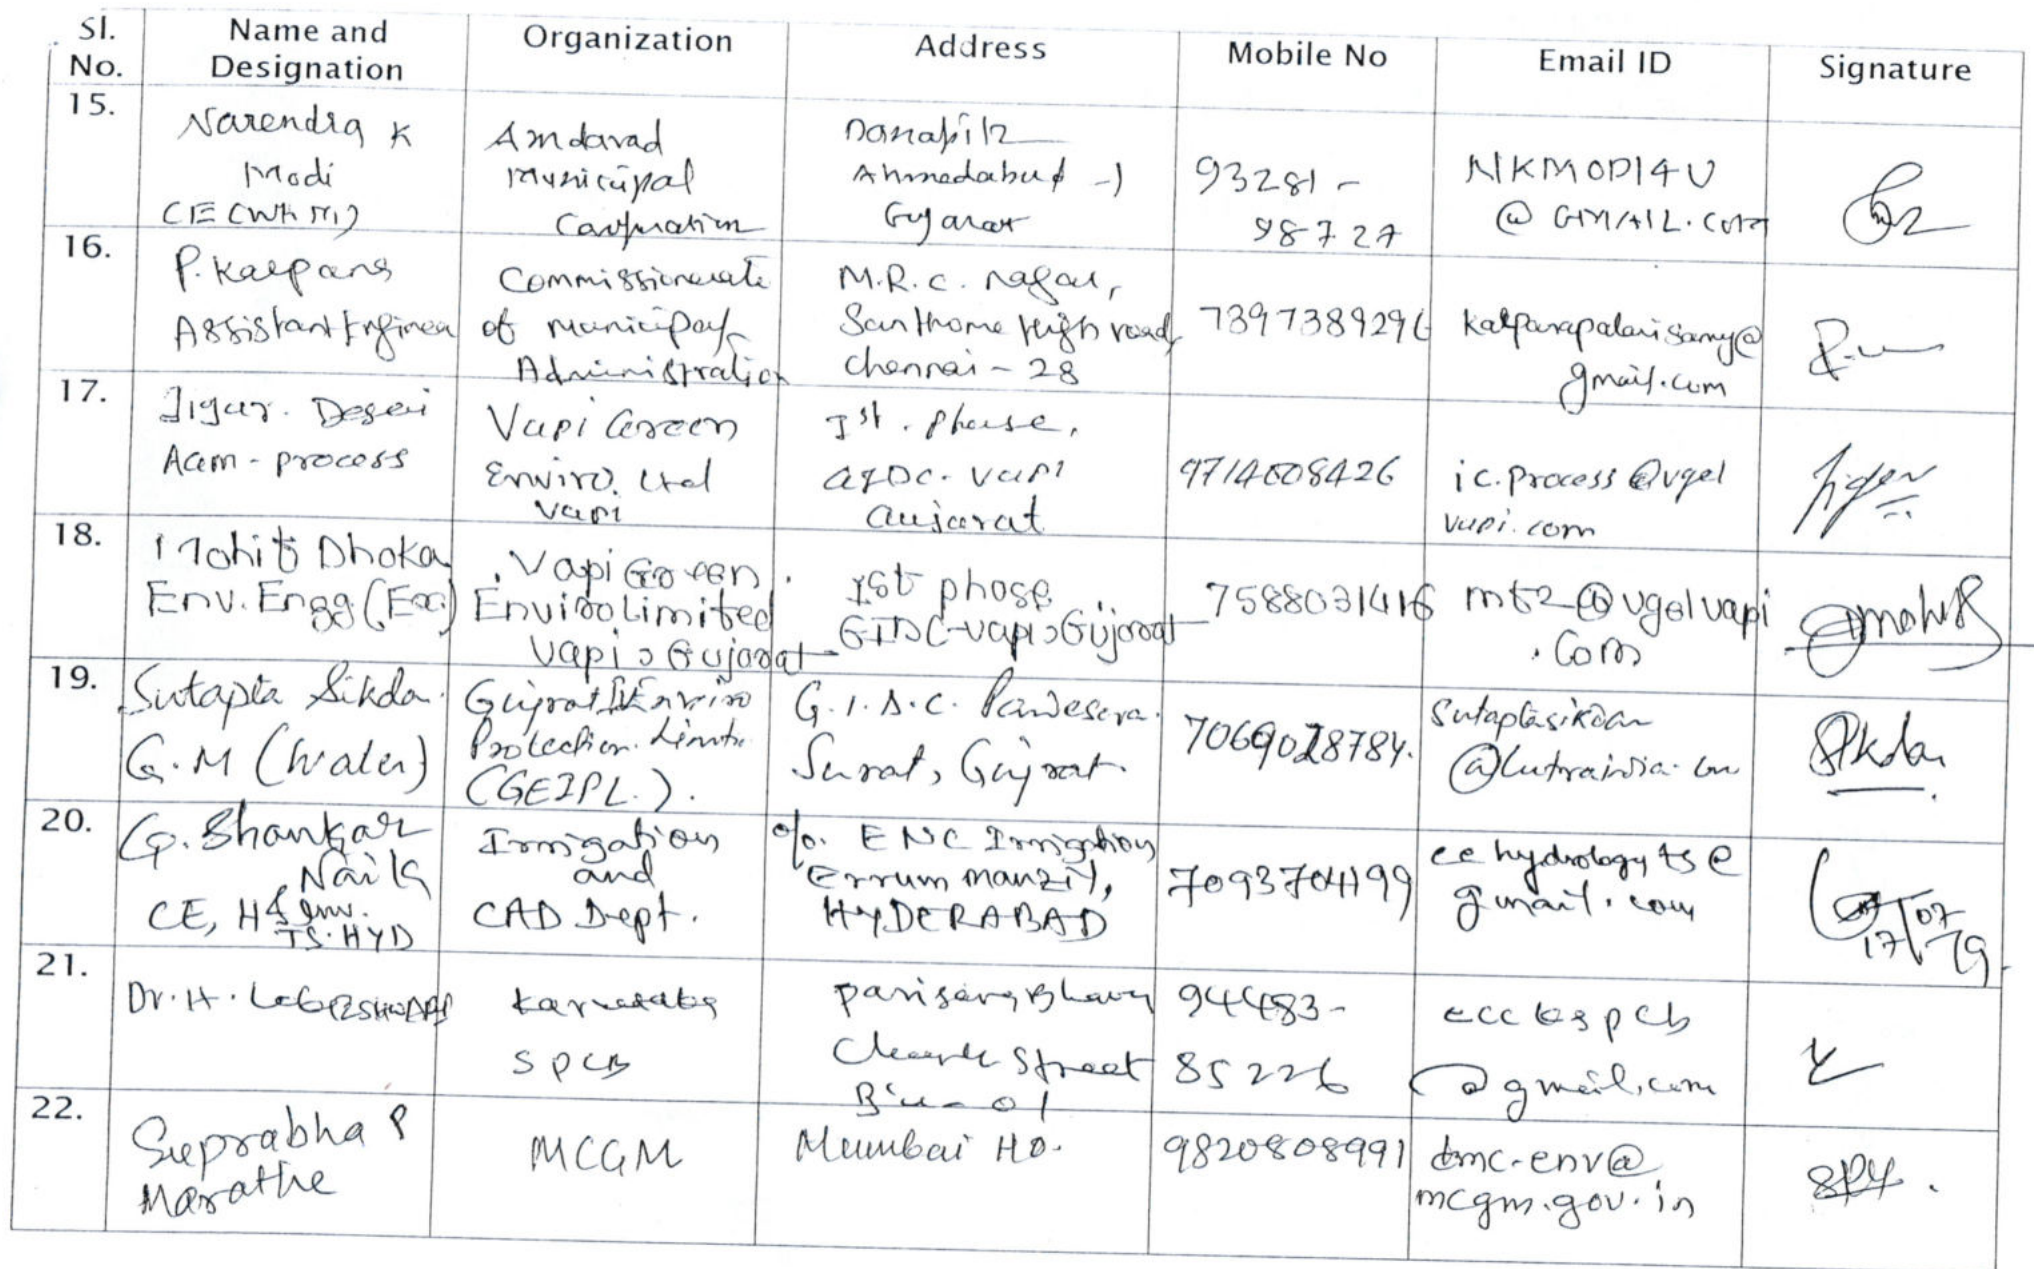 Sl. No. Name and Designation Organization Address Mobile No Email ID Signature
15.
Narendra K
Modi
CE
Amdavad
Municipal
Corporation
Danapith
Ahmedabad -1
Gujarat
93281-
98727
NKMODI4U
@ GMAIL.COM
16.
P. Kalpana
Assistant Engineer
Commissionerate
of Municipal
Administration
M.R.C. Nagar,
Santhome High road
Chennai - 28
7397389296
kalpanapalanisamy@
gmail.com
17.
Jigar. Desai
- process
Vapi Green
Enviro. Ltd
Vapi
Ist. Phase,
GIDC. Vapi
Gujarat
9714608426
ic.process @vgel
vapi.com
Jigar
18.
Mohit Dhoka
Env. Engg (Ex.)
Vapi Green
Enviro Limited
Vapi, Gujarat
Ist phase
GIDC-vapi, Gujarat
7588031416
mt2@vgelvapi
.com
19.
Sutapta Sikdar
G.M (Water)
Gujrat Enviro
Protection. Limite
(GEIPL.).
G.I.D.C. Pandesera.
Surat, Gujrat.
7069028784.
sutaptasikdar
@luthraindia.
Sikdar
20.
G. Shankar
Naik
CE, H & Env.
TS. HYD
Irrigation
and
CAD Dept.
o/o. ENC Irrigation
Errum manzil,
HYDERABAD
7093704199
ce hydrology ts @
gmail.com
17/07
19.
21.
Dr. H.
Karnataka
SPCB
Parisara Bhavan
Church Street
B'lu - 01
94483-
85226
pcb
@gmail.com
22.
Suprabha P
Marathe
MCGM
Mumbai HO.
9820808991
dmc.env@
mcgm.gov.in